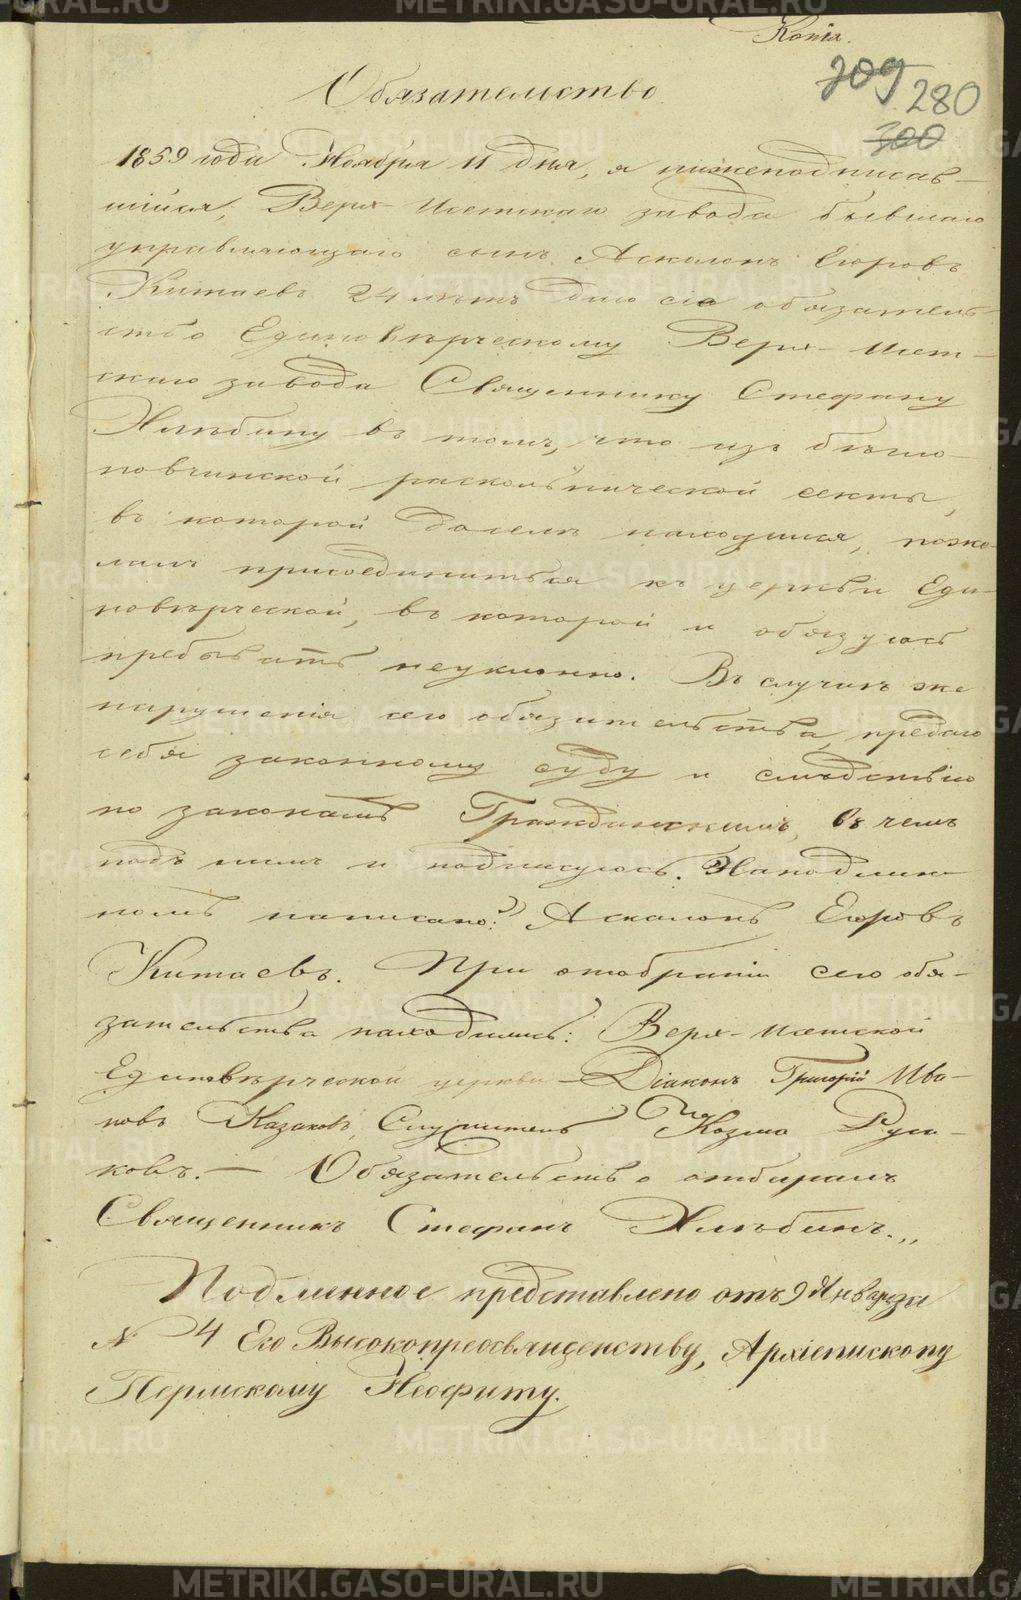 Копія.
Обязательство
309 280
300
1859 года Ноября 11 дня, я нижеподписав-
шійся, Верх-Исетскаго завода бывшаго
управляющаго сынъ Аскалонъ Егоровъ
Китаевъ 24 лѣтъ даю сіе обязатель-
ство Единовѣрческому Верх-Исет-
скаго завода Священнику Стефану
Хлѣбину въ томъ, что изъ бѣгло-
повчинской раскольнической секты,
въ которой доселѣ находился, поже-
лалъ присоединиться къ церкви Еди-
новѣрческой, въ которой и обязуюсь
пребывать неуклонно. Въ случаѣ же
нарушенія сего обязательства, предаю
себя законному суду и слѣдствію
по законамъ Гражданскимъ, въ чемъ
подъ симъ и подписуюсь. На подлин-
номъ написано: Аскалонъ Егоровъ
Китаевъ. При отобраніи сего обя-
зательства находились: Верх-Исетской
Единовѣрческой церкви – Діаконъ Григорій Ива-
новъ Казаковъ, Служитель Козма Руса-
ковъ. — Обязательство отбиралъ
Священникъ Стефанъ Хлѣбинъ.„
Подлинное представлено отъ 9 Января за
№ 4 Его Высокопреосвященству, Архіепископу
Пермскому Неофиту.
METRIKI.GASO-URAL.RU